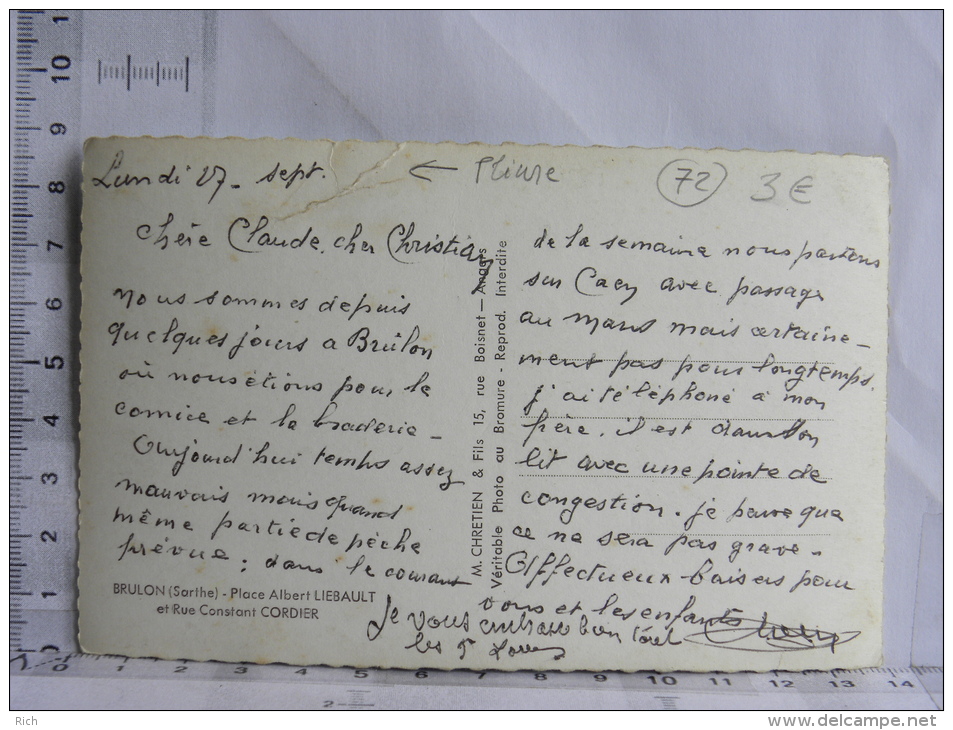 Lundi 27 - sept.
← Pliure
72
3 €
chère Claude, cher Christian
nous sommes depuis
quelques jours a Brûlon
où nous étions pour le
comice et la braderie -
Aujourd'hui temps assez
mauvais mais quand
même partie de pêche
prévue ; dans le courant
BRULON (Sarthe) - Place Albert LIEBAULT
et Rue Constant CORDIER
M. CHRETIEN & Fils 15, rue Boisnet — Angers
Véritable Photo au Bromure - Reprod. Interdite
de la semaine nous partons
sur Caen avec passage
au mans mais certaine-
ment pas pour longtemps.
j'ai téléphoné à mon
père. il est dans son
lit avec une pointe de
congestion. je pense que
ce ne sera pas grave -
Affectueux baisers pour
vous et les enfants
Je vous embrasse bien
les
Rich
www.delcampe.net